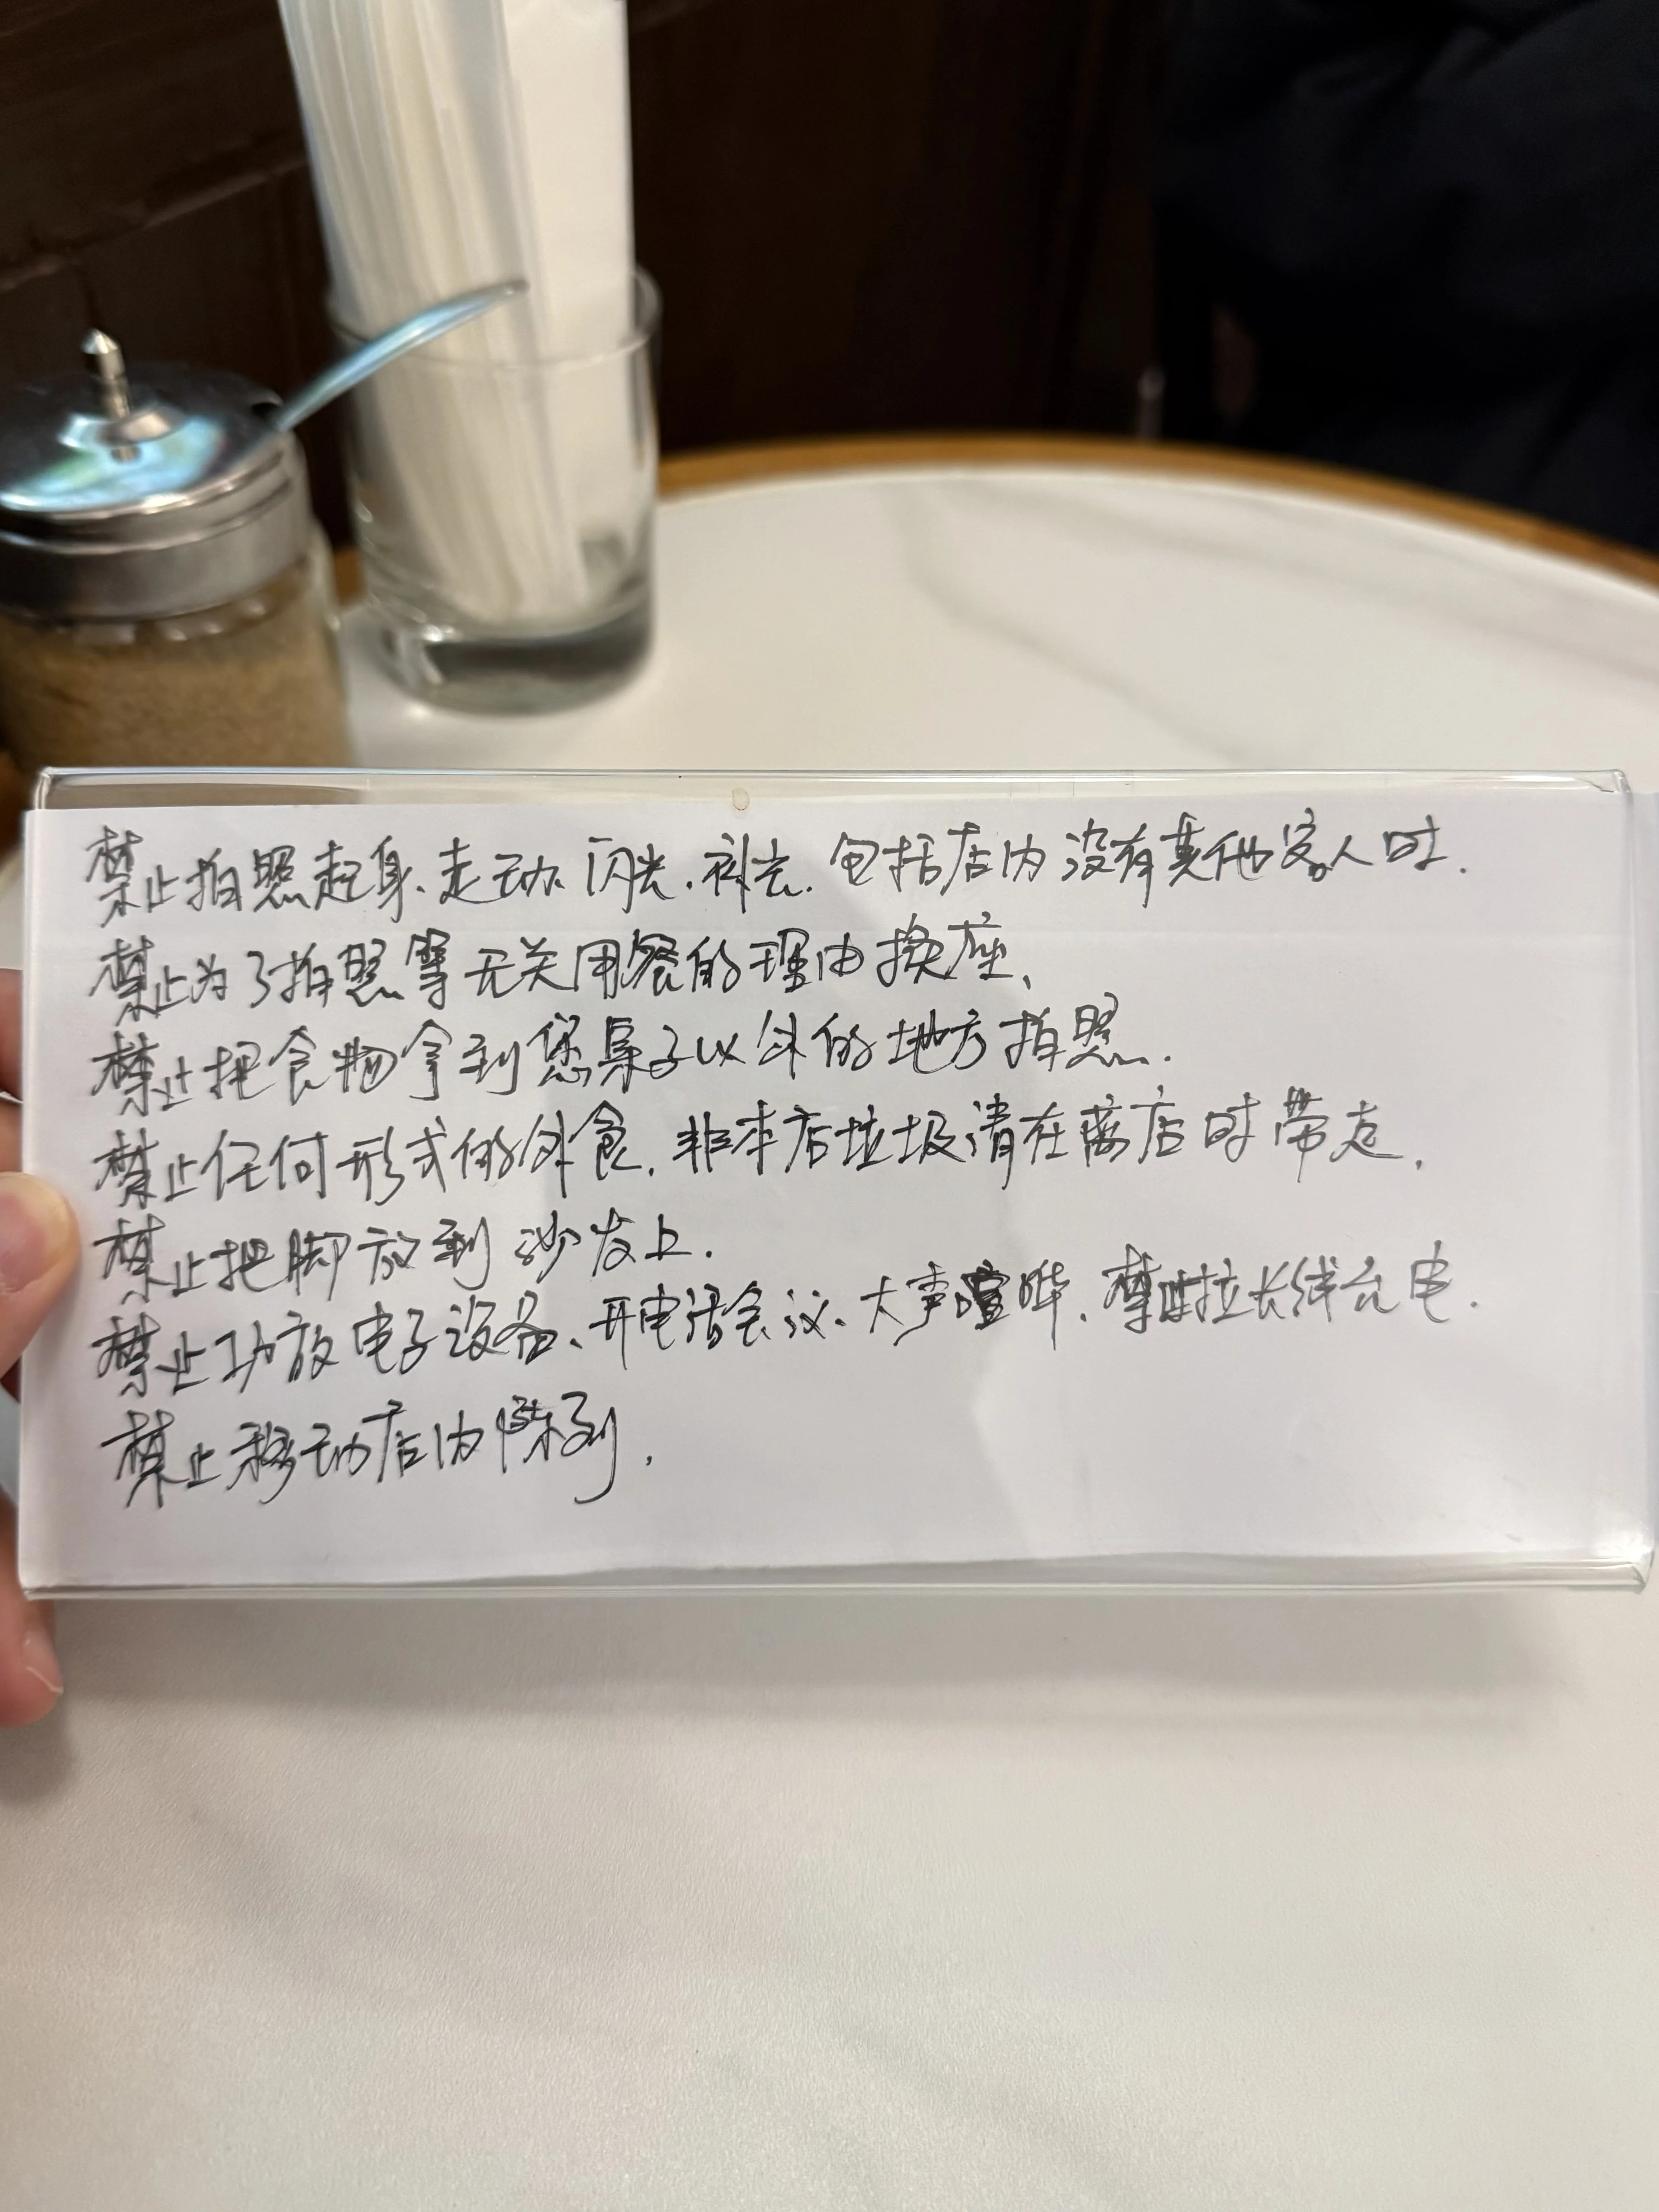 禁止拍照起身、走动、闪光、补光、包括店内没有其他客人时.
禁止为了拍照等无关用餐的理由换座、
禁止把食物拿到您桌子以外的地方拍照.
禁止任何形式的外食、非本店垃圾请在离店时带走.
禁止把脚放到沙发上.
禁止功放电子设备、开电话会议、大声喧哗、禁止拉长线充电.
禁止移动店内陈列.